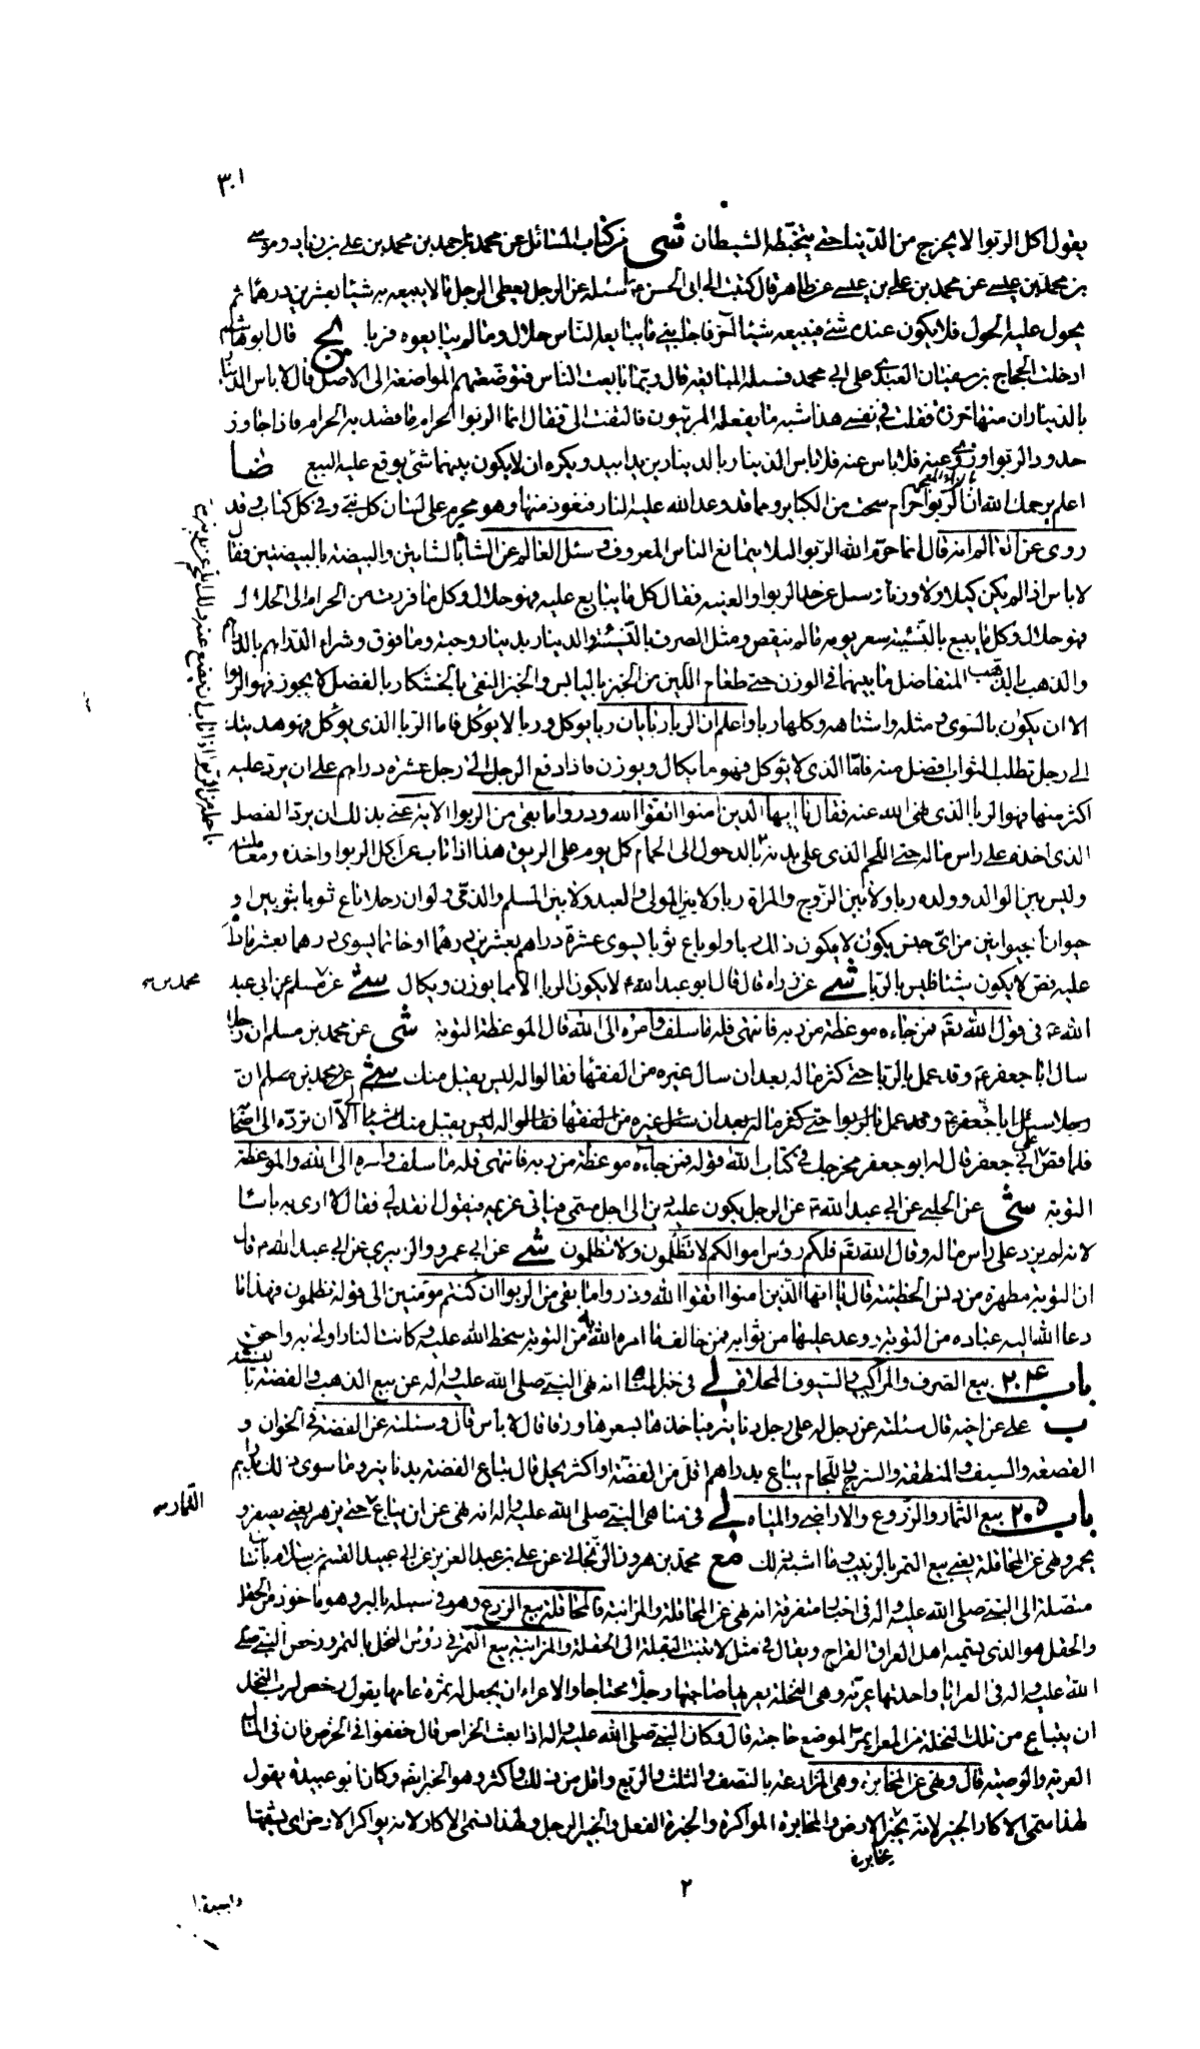 ٣٠١
يقول اكل الربوا لا يخرج من الدنيا حتى يتخبطه الشيطان شى من كتاب المسائل عن محمد بن احمد بن محمد بن على بن زياد وموسى
بن محمد بن عيسى عن محمد بن على بن عيسى عن طاهر قال كتبت الى ابى الحسن ع اسئله عن الرجل يعطى الرجل مالا يبيعه به شيئا بعشرين درهما ثم
يحول عليه الحول فلا يكون عنده شئ فيبيعه شيئا آخر فاجابنى ما يتبايعه الناس حلال وما لم يتبايعوه فربا يج قال ابوهاشم
ادخلت الحجاج بن سفيان العبدى على ابى محمد فسئله المبايعة قال ربما بايعت الناس فتوضعتهم المواضعة الى الاصل قال لا باس الدينار
بالدينارين منها خرزة فقلت فى نفسى هذا شبه ما يفعله المربيون فالتفت الى فقال انما الربوا الحرام ما قصد به الحرام فاذا جاوز
حدود الربوا وزوى عنه فلا باس عنه فلا باس الدينار بالدينارين يدا بيد ويكره ان لا يكون بينهما شئ يوقع عليه البيع ضا
اعلم يرحمك الله ان الربوا حرام سحت من الكبائر ومما قد وعد الله عليه النار فنعوذ منها وهو محرم على لسان كل نبى وفى كل كتاب وقد
روى عن العالم انه قال انما حرم الله الربوا لئلا يتمانع الناس المعروف وسئل العالم عن الشاة بالشاتين والبيضة بالبيضتين فقال
لا باس اذا لم يكن كيلا ولا وزنا وسئل عن حد الربوا والعينة فقال كل ما يتبايع عليه فهو حلال وكل ما فررت من الحرام الى الحلال
فهو حلال وكل ما يبيع بالنسيئة سعر يومه ما لم ينقص ومثل الصرف بالنسيئة والدينار بدينار وحبة وما فوق وشراء الدراهم بالدراهم
والذهب بالذهب المتفاضل ما بينهما فى الوزن حتى طعام اللين من الخبز باليابس والخبز النقى بالخشكار بالفضل لا يجوز فهو الربوا
الا ان يكون بالسوى ومثله واشباهه وكلها ربا واعلم ان الربا ربائان ربا يوكل وربا لا يوكل فاما الربا الذى يوكل فهو هديتك
الى رجل تطلب الثواب افضل منه فاما الذى لا يوكل فهو ما يكال ويوزن فاذا دفع الرجل الى رجل عشرة دراهم على ان يرد عليه
اكثر منها فهو الربا الذى نهى الله عنه فقال يا ايها الذين آمنوا اتقوا الله وذروا ما بقى من الربوا الاية عنى بذلك ان يرد الفضل
الذى اخذه على راس ماله حتى اللحم الذى على بدنه بالدخول الى الحمام كل يوم على الريق هذا اذا تاب عن اكل الربوا واخذه ومعاملته
وليس بين الوالد وولده ربا ولا بين الزوج والمراة ربا ولا بين المولى والعبد ولا بين المسلم والذمى ولو ان رجلا باع ثوبا بثوبين او
حيوانا بحيوانين من اى جنس يكون لا يكون ذلك ربا ولو باع ثوبا يسوى عشرة دراهم بعشرين درهما او خاتما يسوى درهما بعشرة مادام
عليه فص لا يكون شيئا فليس بالربا شى عن زرارة قال قال ابو عبد الله ع لا يكون الربا الا مما يوزن ويكال شى عن محمد بن مسلم عن ابى عبد
الله ع فى قول الله تعم فمن جاءه موعظة من ربه فانتهى فله ما سلف وامره الى الله قال الموعظة التوبة شى عن محمد بن مسلم ان رجلا
سال ابا جعفر ع وقد عمل بالربا حتى كثر ماله بعد ان سال غيره من الفقهاء فقالوا له ليس يقبل منك شى عن محمد بن مسلم ان
رجلا سئل ابا جعفر ع وقد عمل بالربوا حتى كثر ماله بعد ان سئل غيره من الفقهاء فقالوا له ليس يقبل منك شيئا الا ان ترده الى اصحابه
فلما قص على ابى جعفر قال له ابو جعفر مخرجك فى كتاب الله قوله فمن جاءه موعظة من ربه فانتهى فله ما سلف وامره الى الله والموعظة
التوبة شى عن الحلبى عن ابى عبد الله ع عن الرجل يكون عليه دين الى اجل مسمى فياتى غريمه فيقول انقد لى فقال لا ارى به باسا
لانه لم يزد على راس ماله وقال الله تعم فلكم رؤس اموالكم لا تظلمون ولا تظلمون شى عن ابى عمرو الزبيرى عن ابى عبد الله ع قال
ان التوبة مطهرة من دنس الخطيئة قال يا ايها الذين امنوا اتقوا الله وذروا ما بقى من الربوا ان كنتم مؤمنين الى قوله تظلمون فهذا ما
دعا الله اليه عباده من التوبة ووعد عليها من ثوابه فمن خالف ما امره الله به من التوبة سخط الله عليه وكانت النار اولى به واحق
باب ٢٠٤ بيع الصرف والمراكب والسيوف المحلاة لى فى خبر المناهى انه نهى النبى صلى الله عليه واله عن بيع الذهب والفضة بالنسيئة
ب على عن اخيه قال سئلته عن رجل له على رجل دنانير فياخذها بسعرها ورقا قال لا باس قال وسئلته عن الفضة فى الخوان و
القصعة والسيف والمنطقة والسرج واللجام يباع بدراهم اقل من الفضة او اكثر يحل قال تباع الفضة بدنانير وما سوى ذلك بدراهم
باب ٢٠٥ بيع الثمار والزروع والاراضى والمياه لى فى مناهى النبى صلى الله عليه واله انه نهى عن ان يباع الثمار حتى يزهو يعنى يصفر و
يحمر ونهى عن المحاقلة يعنى بيع التمر بالرطب وما اشبه ذلك مع محمد بن هرون الزنجانى عن على بن عبد العزيز عن ابى عبيد القسم بن سلام باسانيد
متصلة الى النبى صلى الله عليه واله فى اخبار متفرقة انه نهى عن المحاقلة والمزابنة فالمحاقلة بيع الزرع وهو فى سنبله بالبر وهو ماخوذ من الحقل
والحقل هو الذى يسميه اهل العراق القراح ويقال فى مثل لا تنبت البقلة الا الحقلة والمزابنة بيع التمر فى رؤس النخل بالتمر ورخص النبى صلى
الله عليه واله فى العرايا واحدتها عرية وهى النخلة يعريها صاحبها رجلا محتاجا والاعراء ان يجعل له ثمرة عامها يقول رخص لرب النخل
ان يبتاع من تلك النخلة من المعرا بتمر لموضع حاجته قال وكان النبى صلى الله عليه واله اذا بعث الخراص قال خففوا فى الخرص فان فى المال
العرية والوصية قال ونهى عن المخابرة وهى المزارعة بالنصف والثلث والربع واقل من ذلك واكثر وهو الخبر ايضا وكان ابو عبيدة يقول
لهذا سمى الاكار الخبير لانه يخابر الارض والمخابرة المواكرة والخبرة الفعل والخبير الرجل ولهذا سمى الاكار لانه يواكر الارض اى يشقها
محمد بن
الثمار
٢